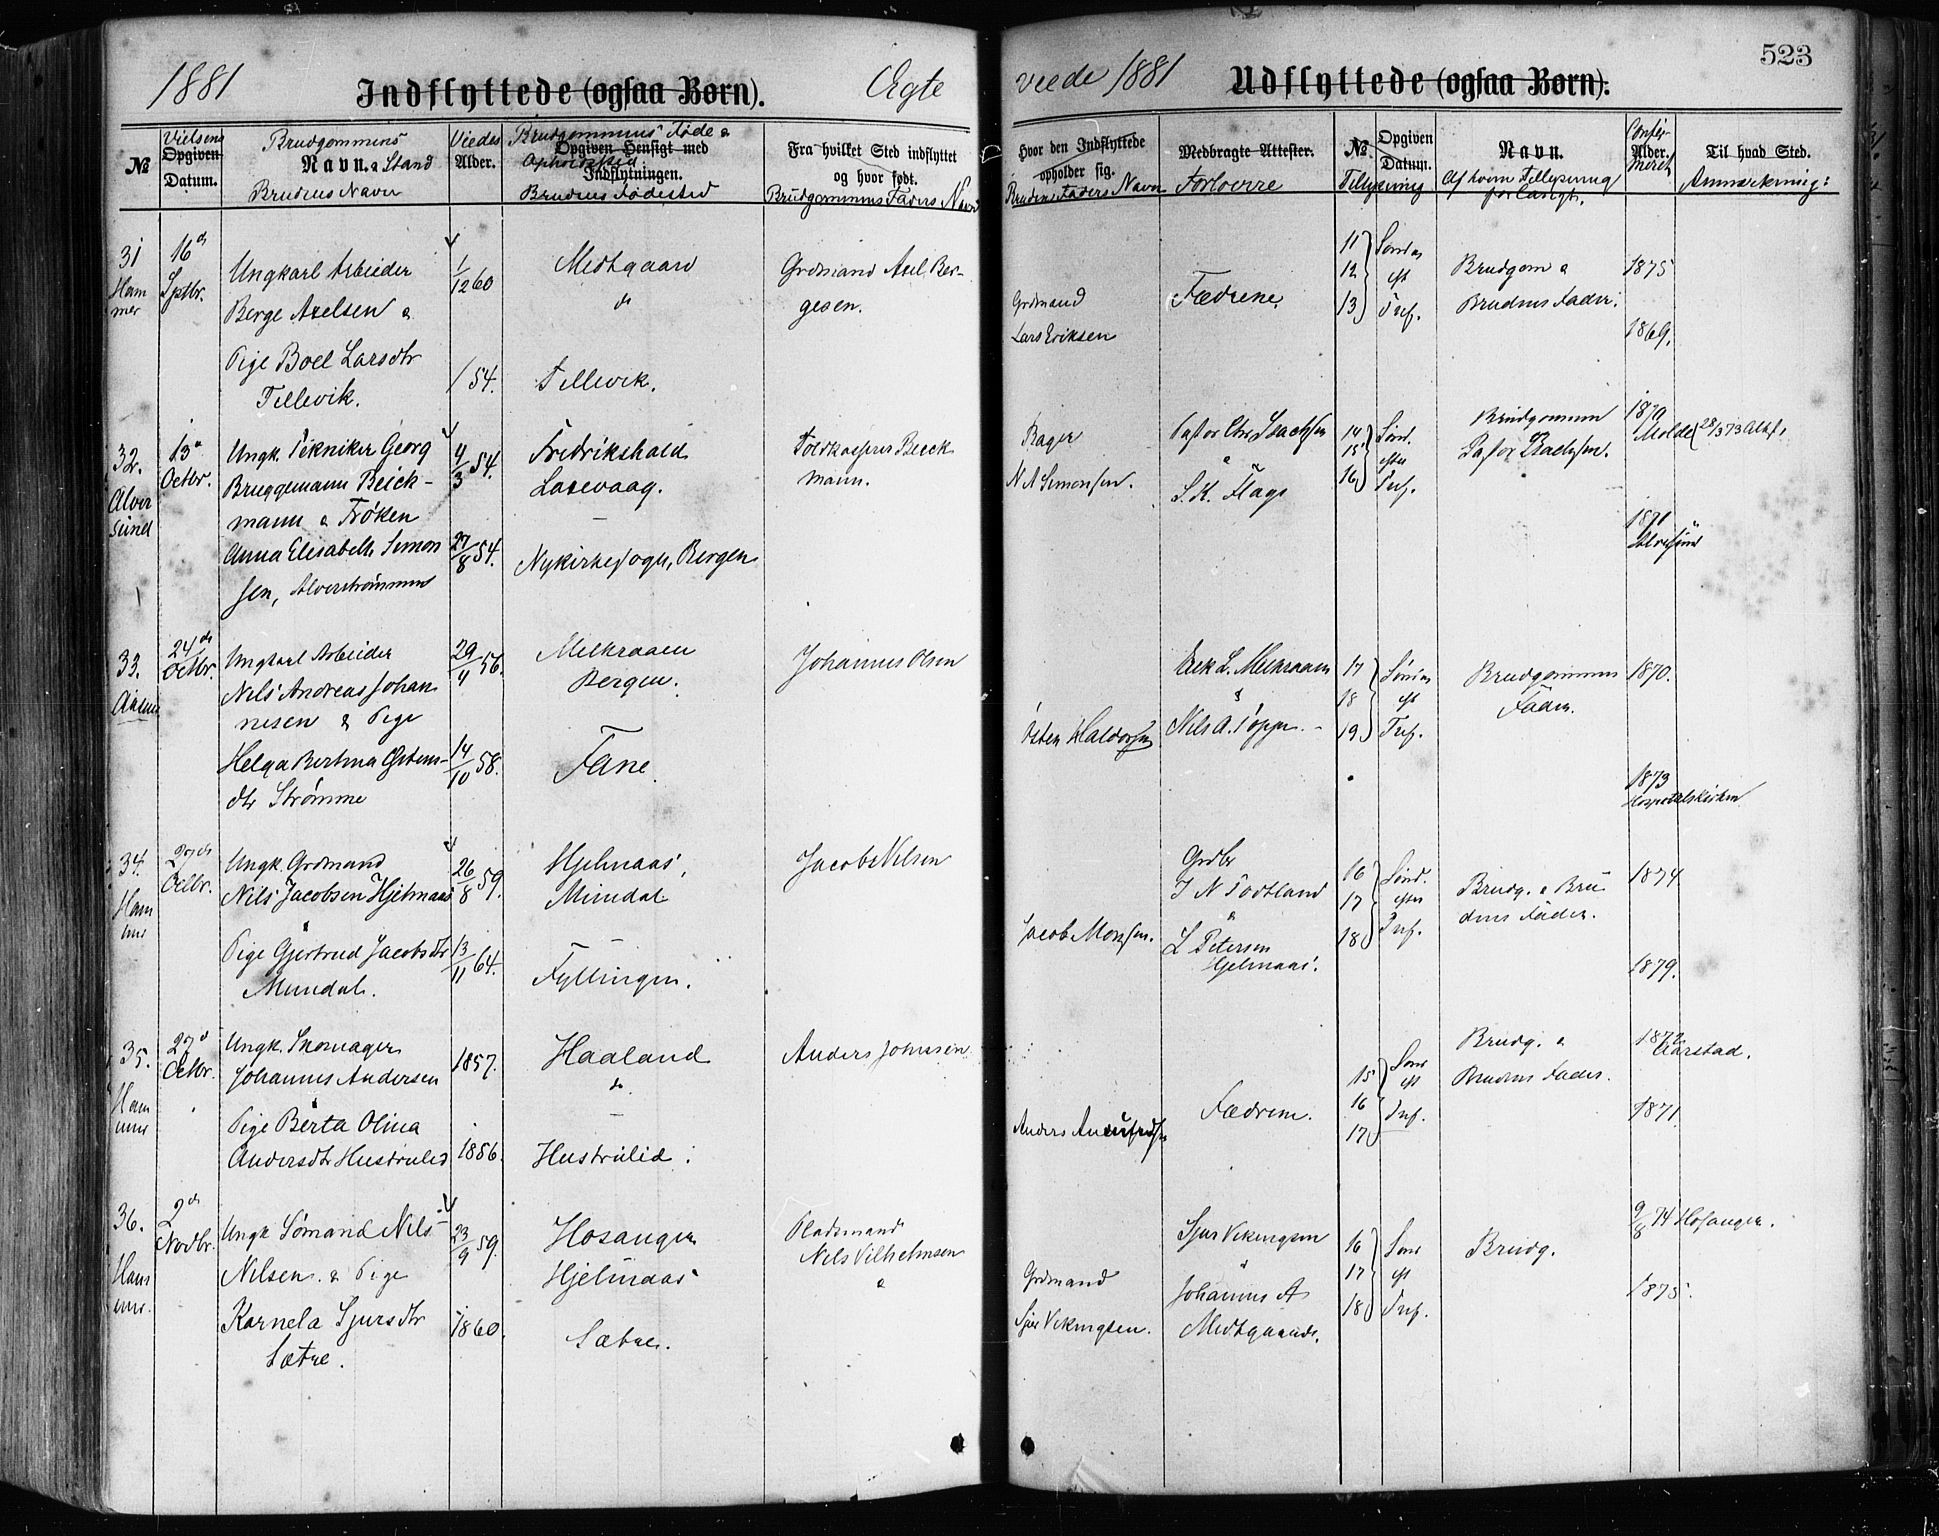 1881 Indflyttede (ogsaa Børn). Ægte
viede 1881 Udflyttede (ogsaa Børn). 523
№
Vielsens
Opgiven
Datum.
Brudgommens
Navn. & Stand
Brudens Navn
Viedes
Alder.
Brudgommens Føde &
Opgiven Hensigt med
Opholdssted
Indflytningen.
Brudens Fødested
Fra hvilket Sted indflyttet
og hvor født.
Brudgommens Faders Navn
Hvor den Indflyttede
opholder sig.
Brudens Faders Navn
Medbragte Attester.
Forlovere
№
Opgiven
Datum.
Tillysning
Navn.
Af hvem Tillysning
forlangt.
Confir-
Alder.
meret
Til hvad Sted.
Anmærkning:
31
Ham
mer
16de
Sptbr.
Ungkarl Arbeider
Berge Axelsen &
Pige Boel Larsdtr
Tellevik.
1/12 60
/ 54.
Midtgaard
do
Tellevik.
Grdmand Axel Ber-
gesen.
Grdmand
Lars Eriksen
Fædrene.
11
12
13
Sønd
eft
Tref.
Brudgom &
Brudens Fader.
1875
1869.
32.
Alver
sund
13de
Octbr.
Ungk. Tekniker Georg
Bruggemann Beick-
mann & Frøken
Anna Elisabeth Simon
sen, Alverstrømmen
4/3 54.
27/8 54.
Fredrikshald
Laxevaag.
Nykirkesogn, Bergen
Toldkasserer Beick
mann.
N A Simonsen.
Pastor Chr Isachsen
&
S. K. Flage
14
15
16
Sønd.
efter
Tref.
Brudgommen
Pastor Isachsen.
1870
Molde
1871
Alversund
33.
24de
Octbr.
Ungkarl Arbeider
Nils Andreas Johan
nesen & Pige
Helga Bertina Østens-
dtr Strømme
29/11 56.
14/10 58.
Melkraaen
Bergen.
Fane.
Johannes Olsen
Østen Haldorsen
Erik L. Melkraaen
&
Nils A. Toppe.
17
18
19
Sønd
eft
Tref.
Brudgommens
Fader.
1870.
1873
Hospitalskirken
34.
Ham
mer
27de
Octbr.
Ungk. Grdmand
Nils Jacobsen Hjelmaas
&
Pige Gjertrud Jacobsdtr
Mundal.
26/8 59.
13/11 64.
Hjelmaas,
Mundal
Fyllingen.
Jacob Nilsen
Jacob Monsen.
Grdbr
J N Todtland
&
L Petersen
Hjelmaas.
16
17
18
Sønd.
efter
Tref.
Brudg. & Bru
dens Fader.
1874
1879.
35.
Ham
mer
27d
Octbr.
Ungk. Skomager
Johannes Andersen
&
Pige Berta Olina
Andersdtr Hustrulid
1857.
1856.
Haaland
do
Hustrulid.
Anders Johnsen
Fædrene.
15
16
17
Sønd
eft
Tref.
Brudg. &
Brudens Fader.
1872
Aarstad.
1871
36.
Ham
mer.
2de
Novbr.
Ungk Sømand Nils
Nilsen. & Pige
Kornela Sjursdtr
Sætre.
23/9 59.
1860.
Hosanger
Hjelmaas
Sætre.
Pladsmand
Nils Vilhelmsen
Grdmand
Sjur Vikingsen.
Sjur Vikingsen
&
Johannes A
Midtgaard.
16
17
18
Sønd
eft
Tref.
Brudg.
9/8 74 Hosanger.
1875.